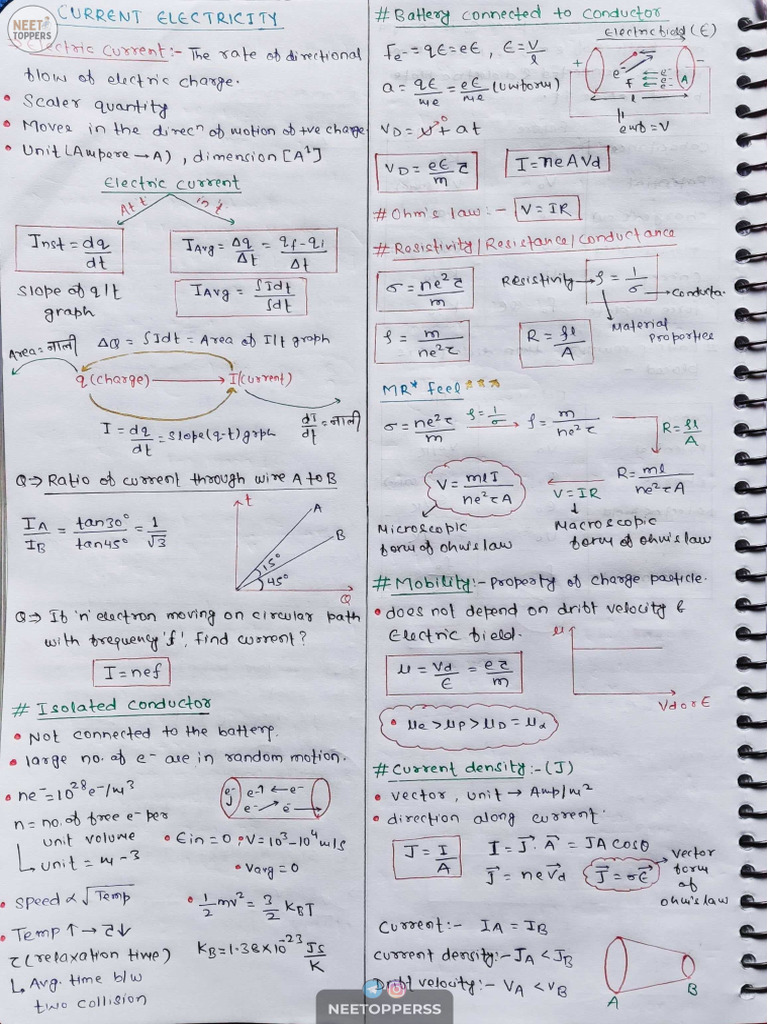 NEET TOPPERS
CURRENT ELECTRICITY
Electric Current:- The rate of directional
flow of electric charge.
• Scaler quantity
• Moves in the direcⁿ of motion of +ve charge
• Unit (Ampere → A), dimension [A¹]
Electric current
At t in 't'
Inst = dq/dt
IAvg = Δq/Δt = qf-qi/Δt
slope of q/t
graph
IAvg = ∫Idt/∫dt
Area = नाली ΔQ = ∫Idt = Area of I/t graph
q(charge) → I(current)
I = dq/dt = slope(q-t) graph
dI/dt = नाली
Q⇒ Ratio of current through wire A to B
IA/IB = tan30°/tan45° = 1/√3
t
A
B
15°
45°
Q
Q⇒ If 'n' electron moving on circular path
with frequency 'f', find current?
I = nef
# Isolated conductor
• Not connected to the battery.
• large no. of e- are in random motion.
• ne- = 10²⁸e-/m³
e- e- ← e-
e- e- →
n = no. of free e- per
unit volume
↳ unit = m-3
• Ein = 0 • V = 10³-10⁴m/s
• Vavg = 0
• Speed ∝ √Temp
• 1/2 mv² = 3/2 KBT
• Temp ↑ → τ↓
τ(relaxation time)
↳ Avg. time b/w
two collision
KB = 1.38×10-23 JS/K
# Battery connected to conductor
Fe- = qE = eE, E = V/l
Electric field (E)
+ e- F e- e- e- A -
l
emf = V
a = qE/me = eE/me (uniform)
VD = u→0 + at
VD = eE/m τ
I = neAVd
# Ohm's law:- V = IR
# Resistivity/Resistance/conductance
σ = ne²τ/m
Resistivity → ρ = 1/σ → Conducta.
Material
Properties
ρ = m/ne²τ
R = ρl/A
MR* feel ★★★
σ = ne²τ/m ρ = 1/σ → ρ = m/ne²τ → R = ρl/A
V = mlI/ne²τA ← V = IR R = ml/ne²τA
Microscopic
form of ohm's law
Macroscopic
form of ohm's law
# Mobility:- property of charge particle.
• does not depend on drift velocity &
Electric field.
μ
Vd or E
μ = Vd/E = eτ/m
• μe > μP > μD = μα
# Current density:- (J)
• vector, unit → Amp/m²
• direction along current.
J = I/A
I = J⃗. A⃗ = JA cosθ
J⃗ = neV⃗d
J⃗ = σE⃗
Vector
form
of
ohm's law
Current:- IA = IB
current density:- JA < JB
Drift velocity:- VA < VB
A B
NEETOPPERSS